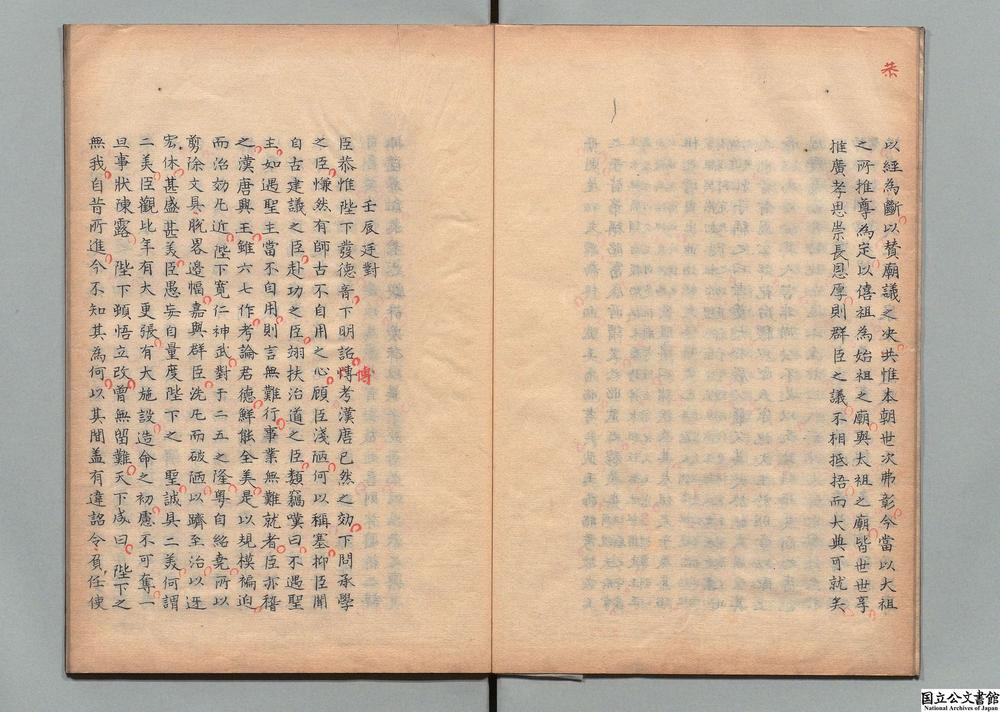 恭
以經為斷以賛廟議之决共惟本朝世次弗彰今當以大祖
之所推尊為定以僖祖為始祖之廟與太祖之廟皆世世享
推廣孝思崇長恩厚則群臣之議不相抵捂而大典可就矣
壬辰廷對
臣恭惟陛下發德音下明詔愽考漢唐已然之効下問承學
博
之臣慊然有師古不自用之心顧臣淺陋何以稱塞抑臣聞
自古建議之臣赴功之臣翊扶治道之臣類竊嘆曰不遇聖
主如遇聖主當不自用則言無難行事業無難就者臣亦稽
之漢唐興王雖六七作考論君德鮮能全美是以規模褊迫
而治効凡近陛下寛仁神武對于二五之隆粤自紹堯所以
剪除文具脱畧邉幅嘉與群臣洗凡而破陋以躋至治以迓
宏休甚盛甚美臣愚妄自量度陛下之聖誠具二美何謂
二美臣觀比年有大更張有大施設造命之初慮不可奪一
旦事狀陳露陛下頓悟立改曽無留難天下咸曰陛下之
無我自昔所進今不知其為何以其間盖有違詔令負任使
国立公文書館
National Archives of Japan